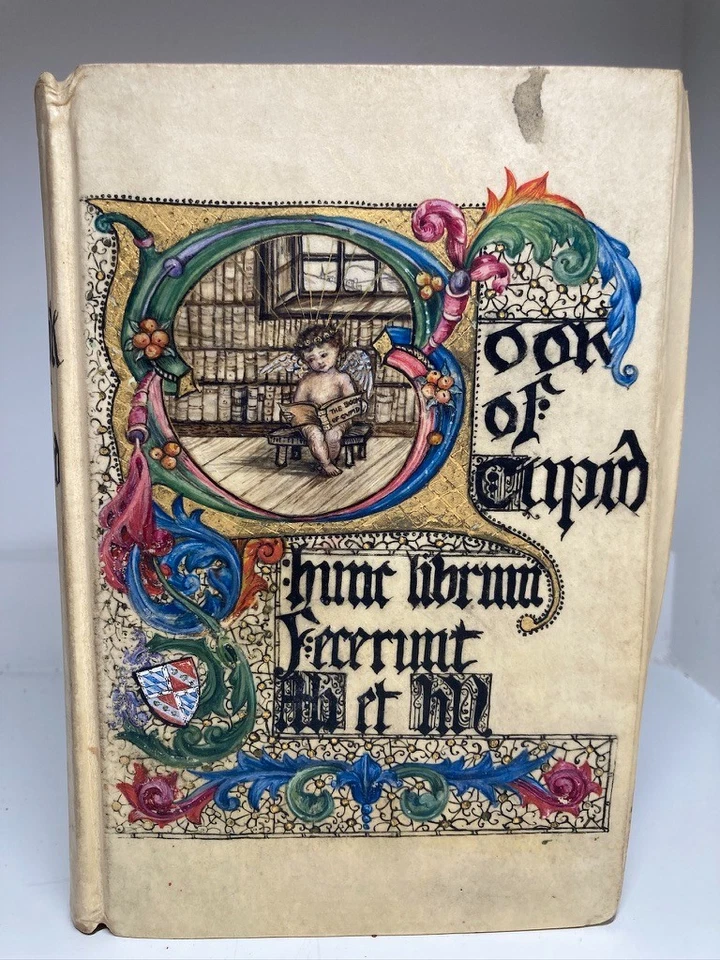 Book
of:
Cupid
THE BOOK
OF CUPID
:hunc librum
Fecerunt
et